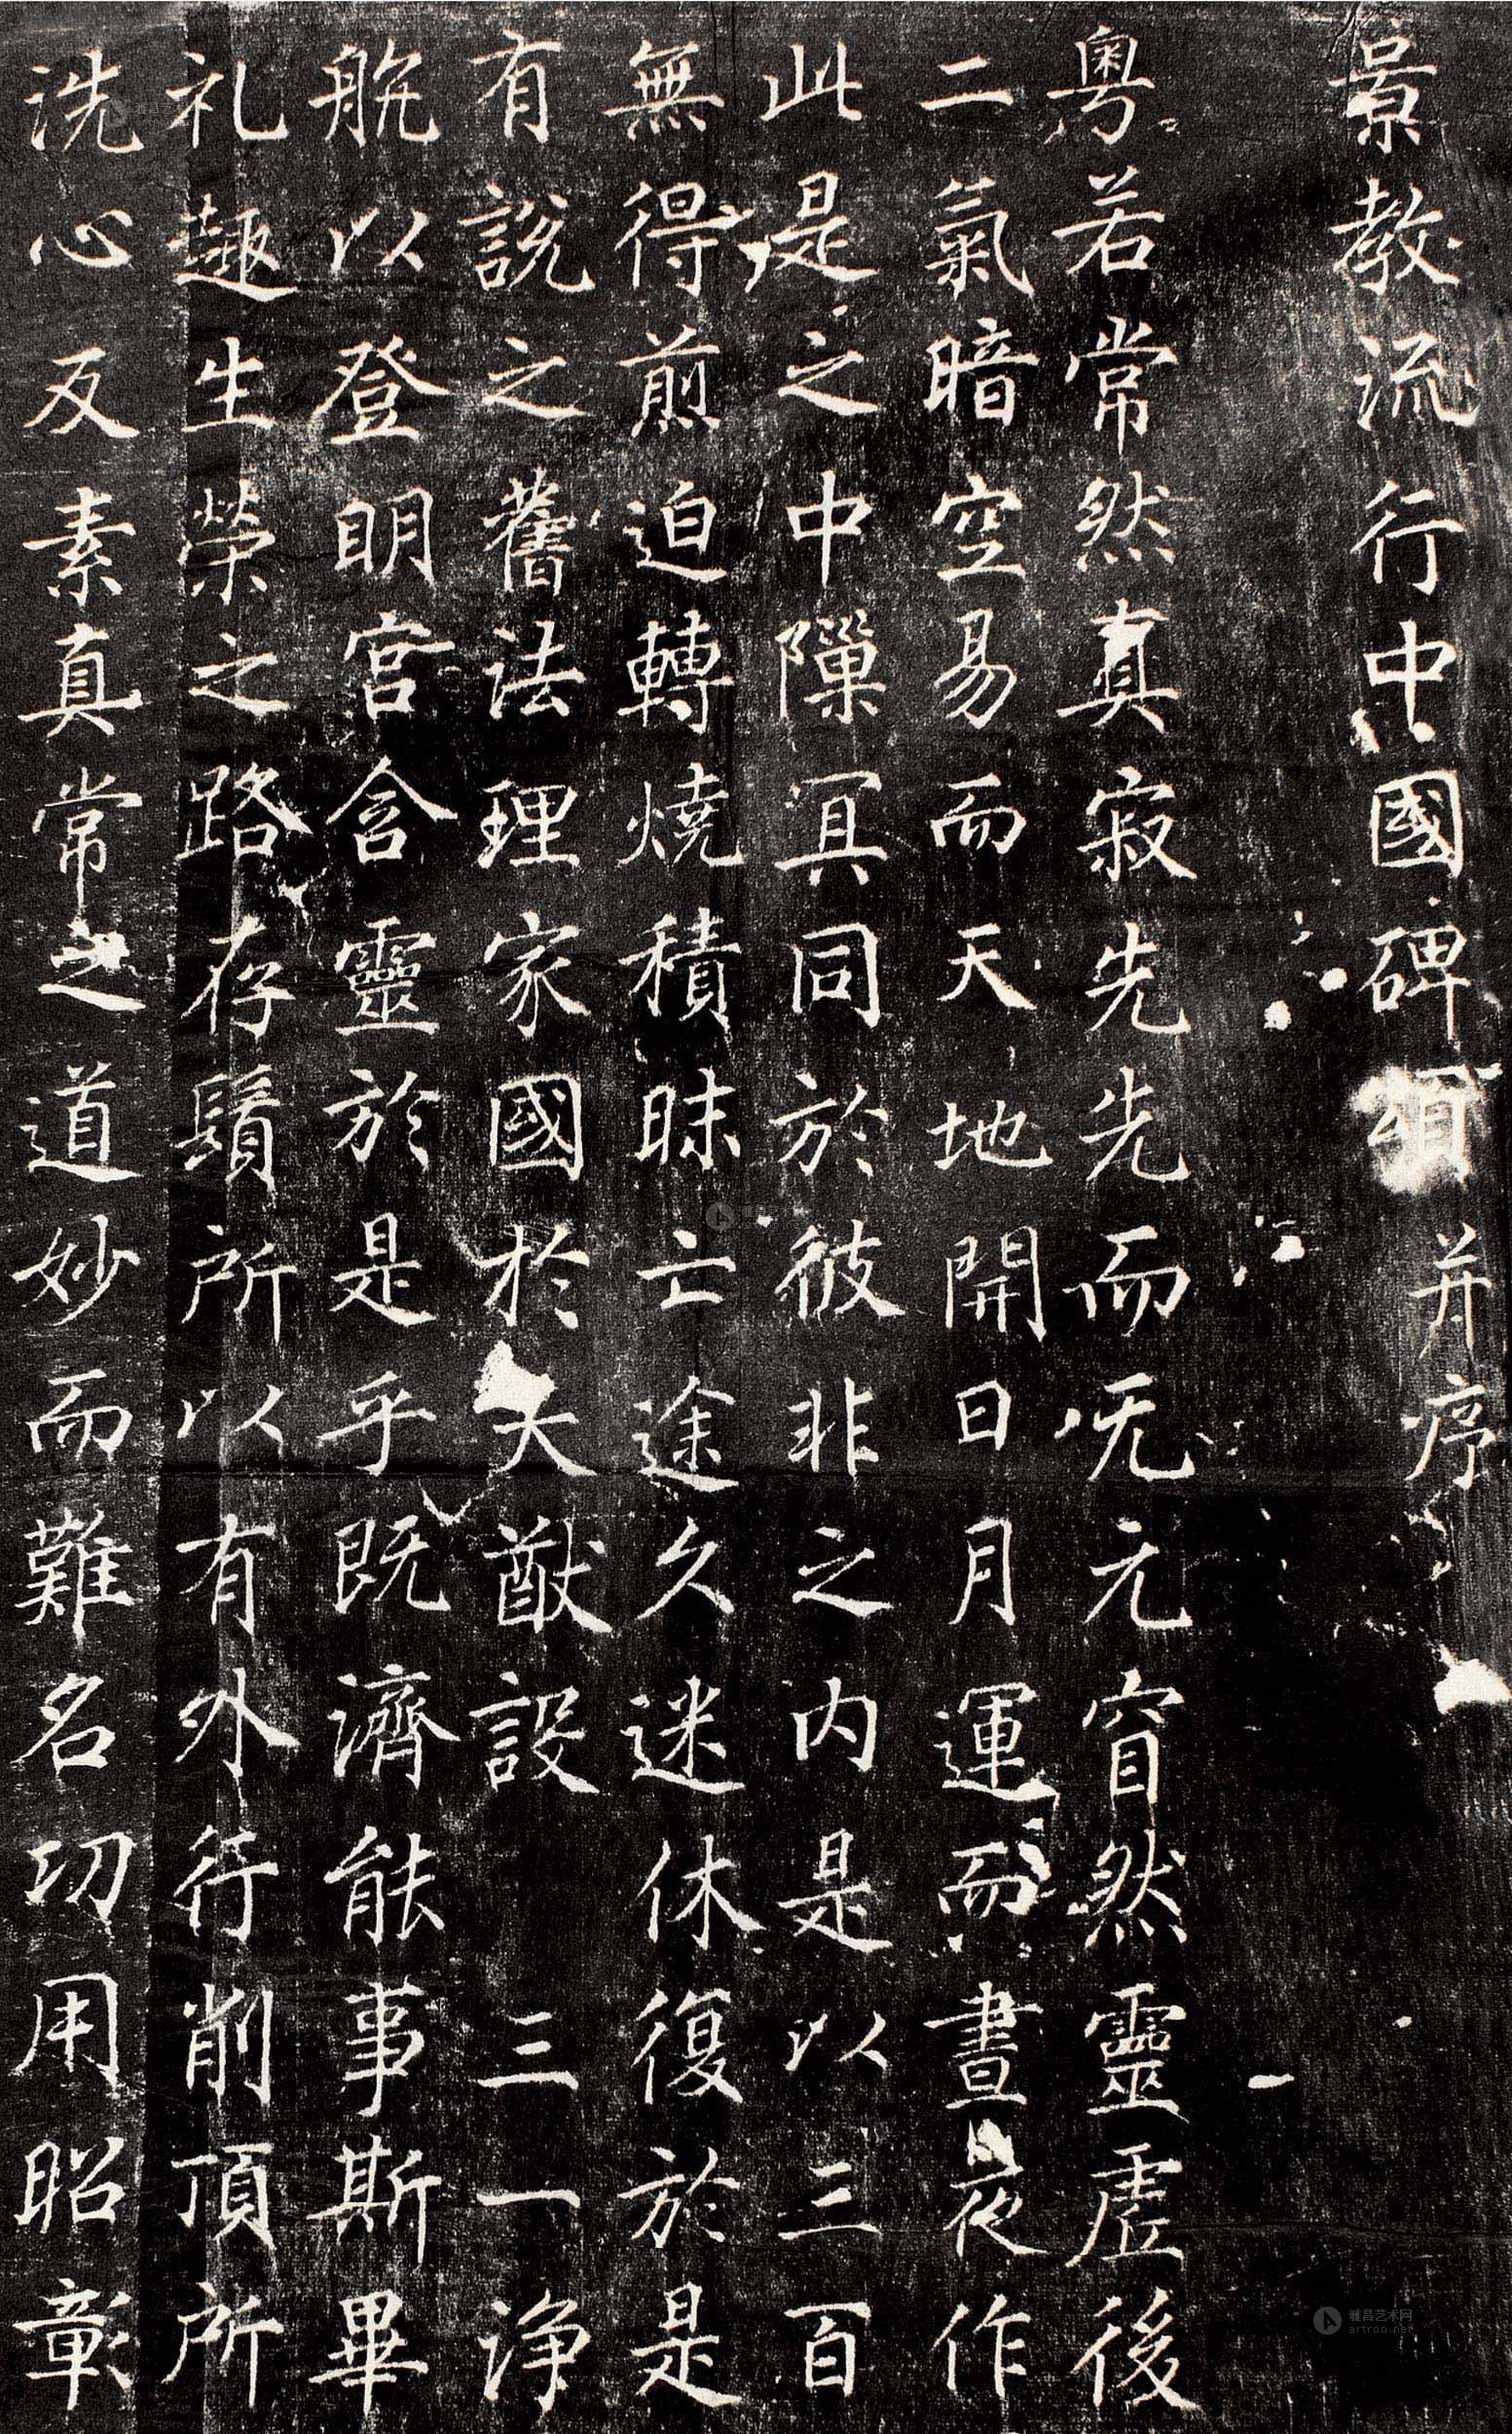 景教流行中國碑頌 并序
粵若常然真寂先先而无元窅然靈虛後
二氣暗空易而天地開日月運而晝夜作
此是之中隟冥同於彼非之内是以三百
無得煎迫轉燒積昧亡途久迷休復於是
有說之舊法理家國於大猷設 三一淨
航以登明宮含靈於是乎既濟能事斯畢
礼趣生榮之路存鬚所以有外行削頂所
洗心反素真常之道妙而難名功用昭彰
雅昌艺术网
artron.net